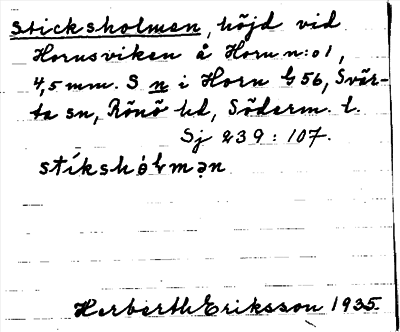 Sticksholmen, höjd vid
Hornsviken å Horn n:o 1,
4,5 mm. S n i Horn b 56, Svär-
ta sn, Rönö hd, Söderm. l.
Sj 239 : 107.
stíkshòlmən
Herbert Eriksson 1935.